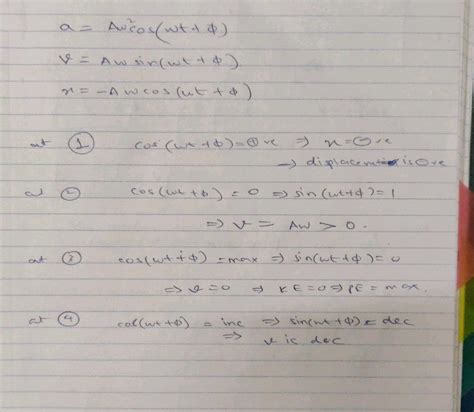 a = Aw²cos(wt+φ)
v = Aw sin(wt+φ)
x = -Aw cos(wt+φ)
at ① cos(wt+φ)=⊕ve ⇒ x=⊖ve
→ displacement is ⊖ve
at ② cos(wt+φ) = 0 ⇒ sin(wt+φ)=1
⇒ v = Aw > 0.
at ③ cos(wt+φ) = max ⇒ sin(wt+φ)=0
⇒ v=0 ⇒ KE=0 ⇒ PE = max.
at ④ cos(wt+φ) = inc ⇒ sin(wt+φ) = dec
⇒ v is dec